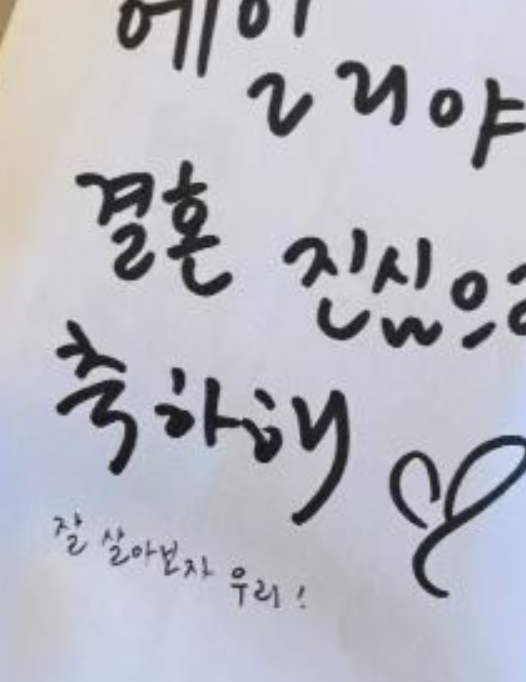 에이
리야
결혼 진심으
축하해
잘 살아보자 우리!